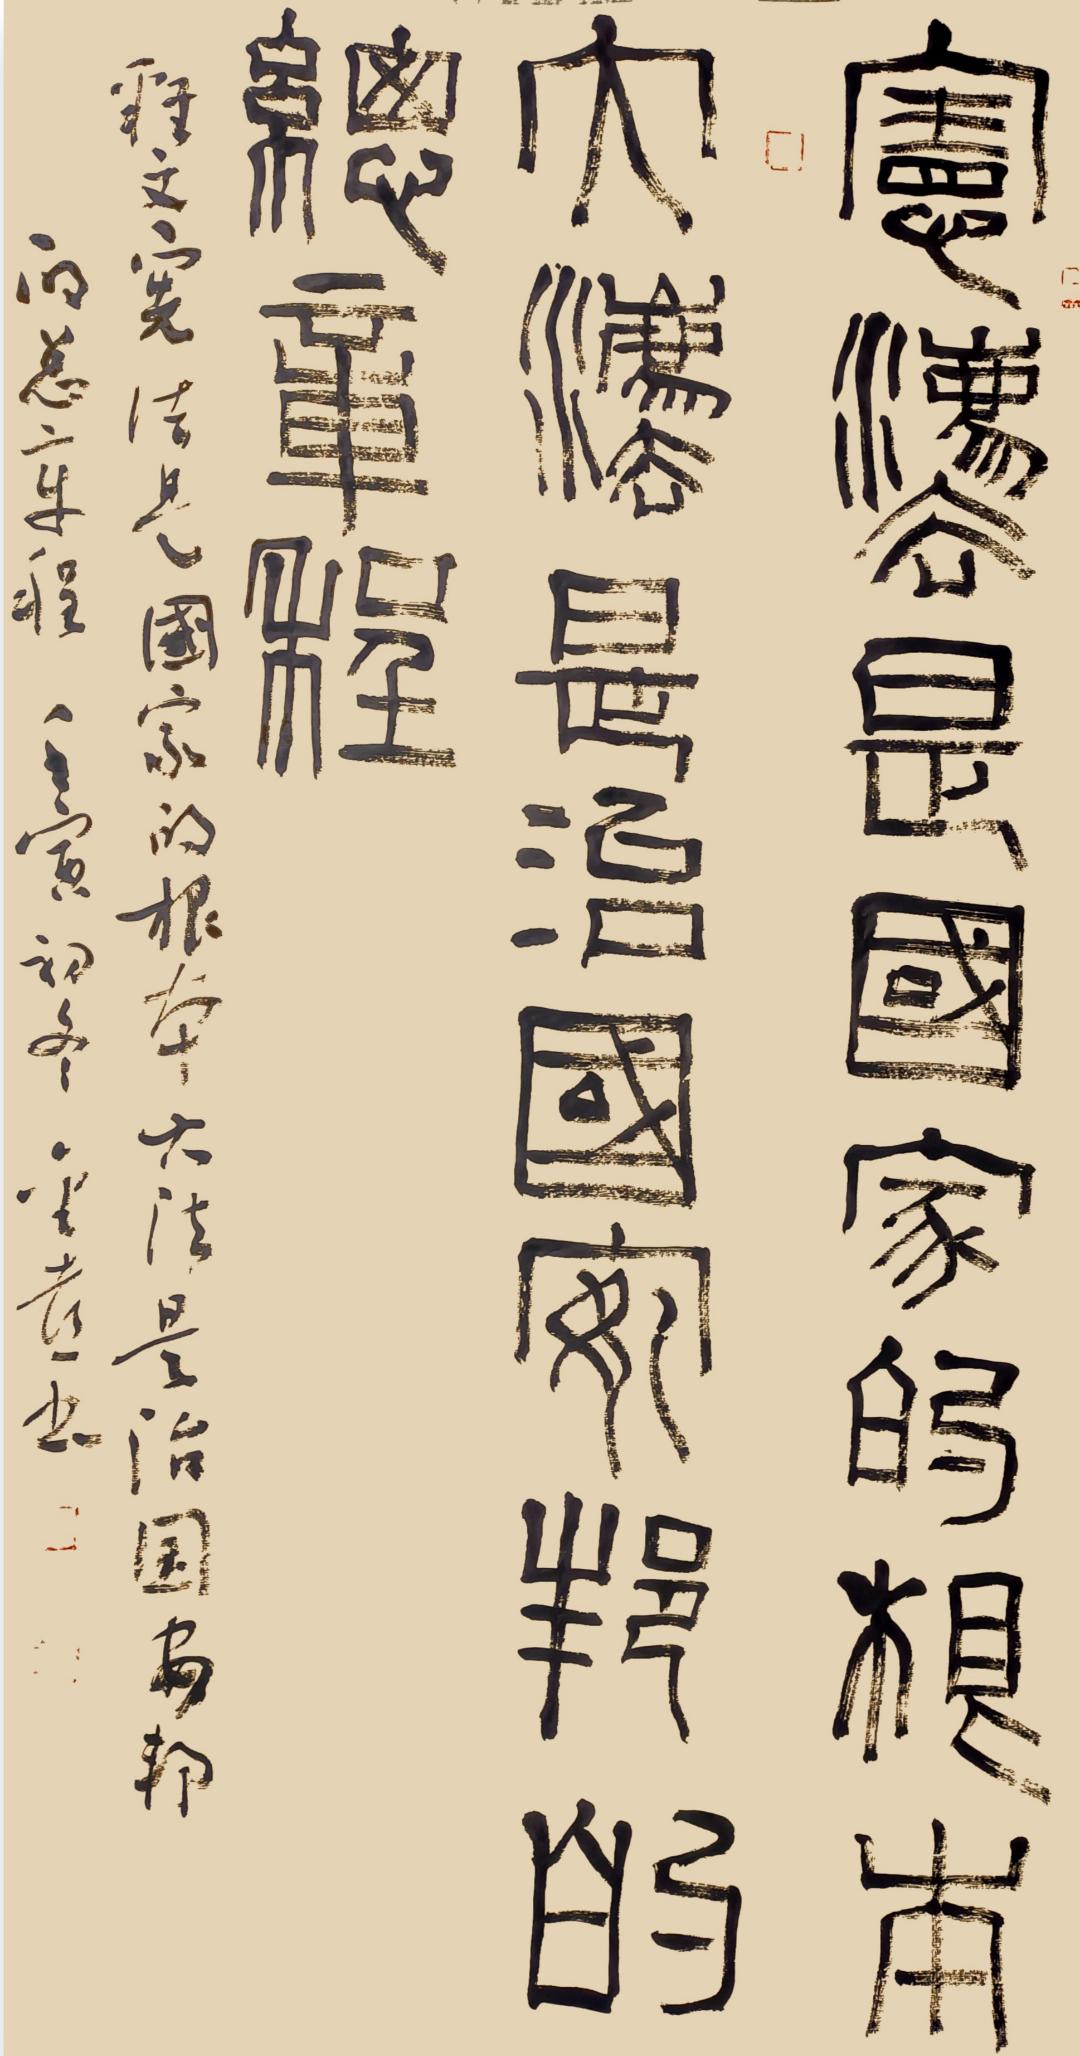 憲灋是國家的根本
大灋是治國安邦的
總章程
釋文憲法是國家的根本大法是治国安邦
的总章程 壬寅初冬 書